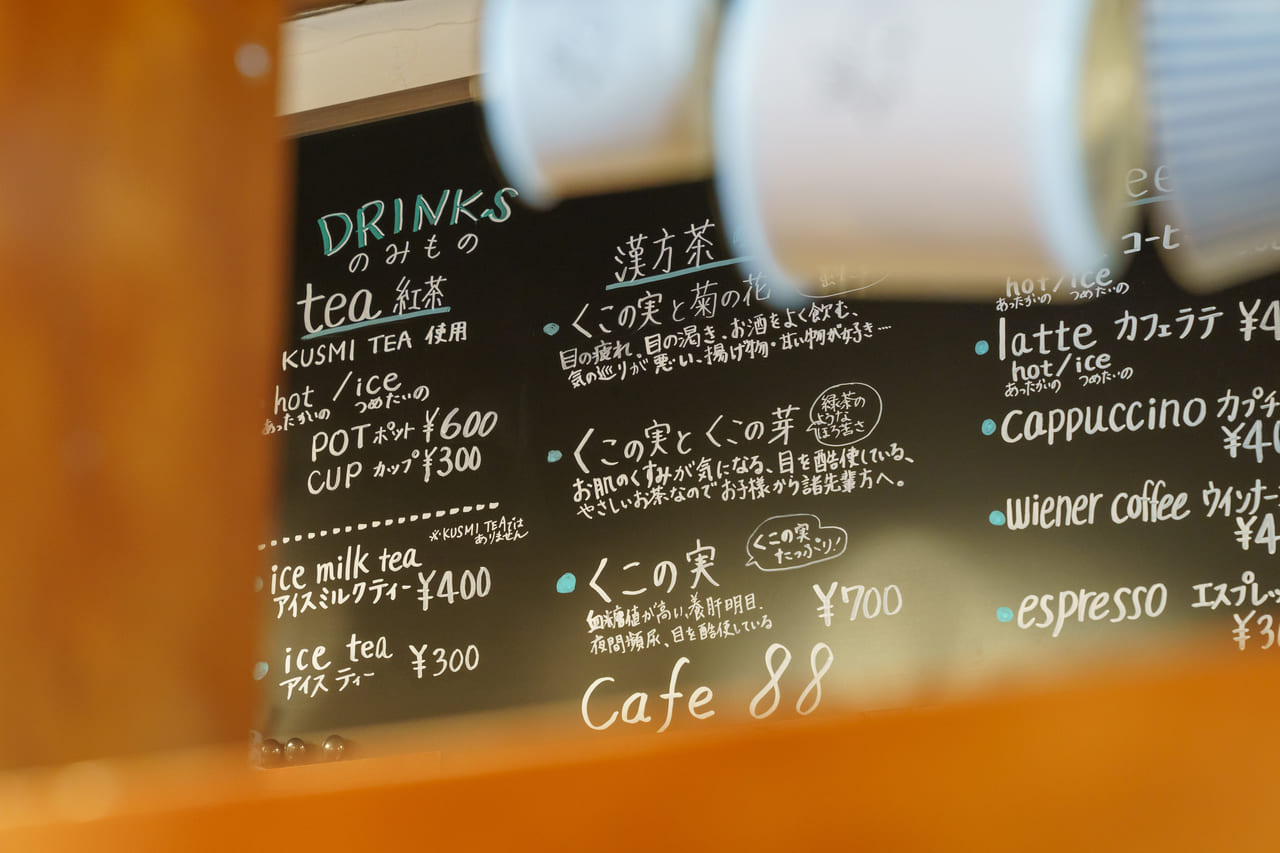 DRINKS
のみもの
tea 紅茶
KUSMI TEA 使用
hot /ice
あったかいの つめたいの
POT ポット ¥600
CUP カップ ¥300
※KUSMI TEAでは
ありません
ice milk tea
アイスミルクティー ¥400
ice tea ¥300
アイスティー
漢方茶
くこの実と菊の花
目の疲れ、目の渇き、お酒をよく飲む、
気の巡りが悪い、揚げ物・甘い物が好き…
くこの実とくこの芽
緑茶の
ような
ほろ苦さ
お肌のくすみが気になる、目を酷使している、
やさしいお茶なのでお子様から諸先輩方へ。
くこの実
くこの実
たっぷり!
血糖値が高い、養肝明目、
夜間頻尿、目を酷使している
¥700
Cafe 88
ee
コーヒ
hot/ice
あったかいの つめたいの
latte カフェラテ ¥4
hot/ice
あったかいの つめたいの
cappuccino カプチ
¥40
wiener coffee ウインナー
¥4
espresso エスプレッ
¥3